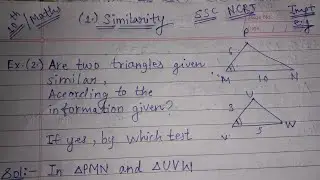 10th / Maths (1.) Similarity SSC NCRT Impt
Ex.(2:) Are two triangles given
similar,
Acording to the
information given?
If yes, by which test
P
6
M 10 N
U
3
V 5 W
Sol:- In △PMN and △UVW